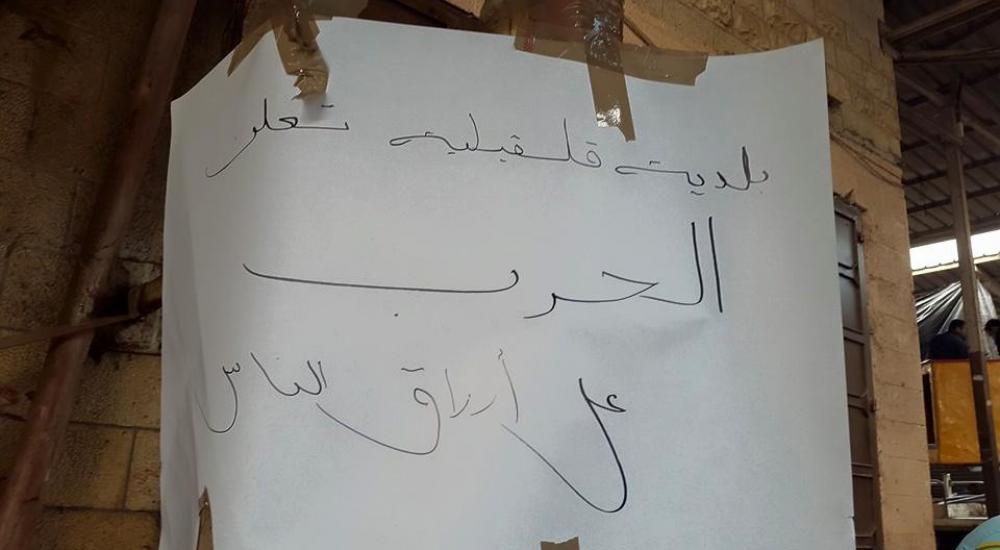 بلدية قلقيلية تعلن
الحرب
على أرزاق الناس